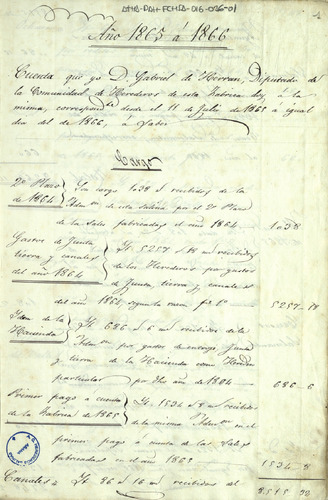 ATHA-DAH-FCHSA-016-026-01
Año 1865 á 1866
Cuenta que yo D. Gabriel de Herran, Diputado de
la Comunidad de Herederos de esta Fabrica doy, á la
misma, correspond.te desde el 11 de Julio de 1865 á igual
dia del de 1866, á saber
Cargo
2º Plazo de 1864 Son cargo 1038 r.s recibidos de la
Adm.on de esta Salina por el 2º Plazo
de la Sales fabricadas el año 1864 1038
Gastos de Junta tierra y canales del año 1864 Yt. 5257 r.s 18 m. recibidos
de los Herederos por gastos
de Junta, tierra y canales
del año 1864 segun 5257-18
Idem de la Hacienda Yt. 686 r.s 6 m. recibidos de la
Adm.on por gastos de Junta
y tierra de la Hacienda como Heredero
particular por dho año de 1864 686-6
Primer pago á cuenta de la Fabrica de 1865 Yt. 1534 r.s 8 m. recibidos
de la misma Adm.on en el
primer pago á cuenta de las Sales
fabricadas en el año 1865 1534-8
Canales = Yt. 36 r.s 16 m. recibidos del
8515-32